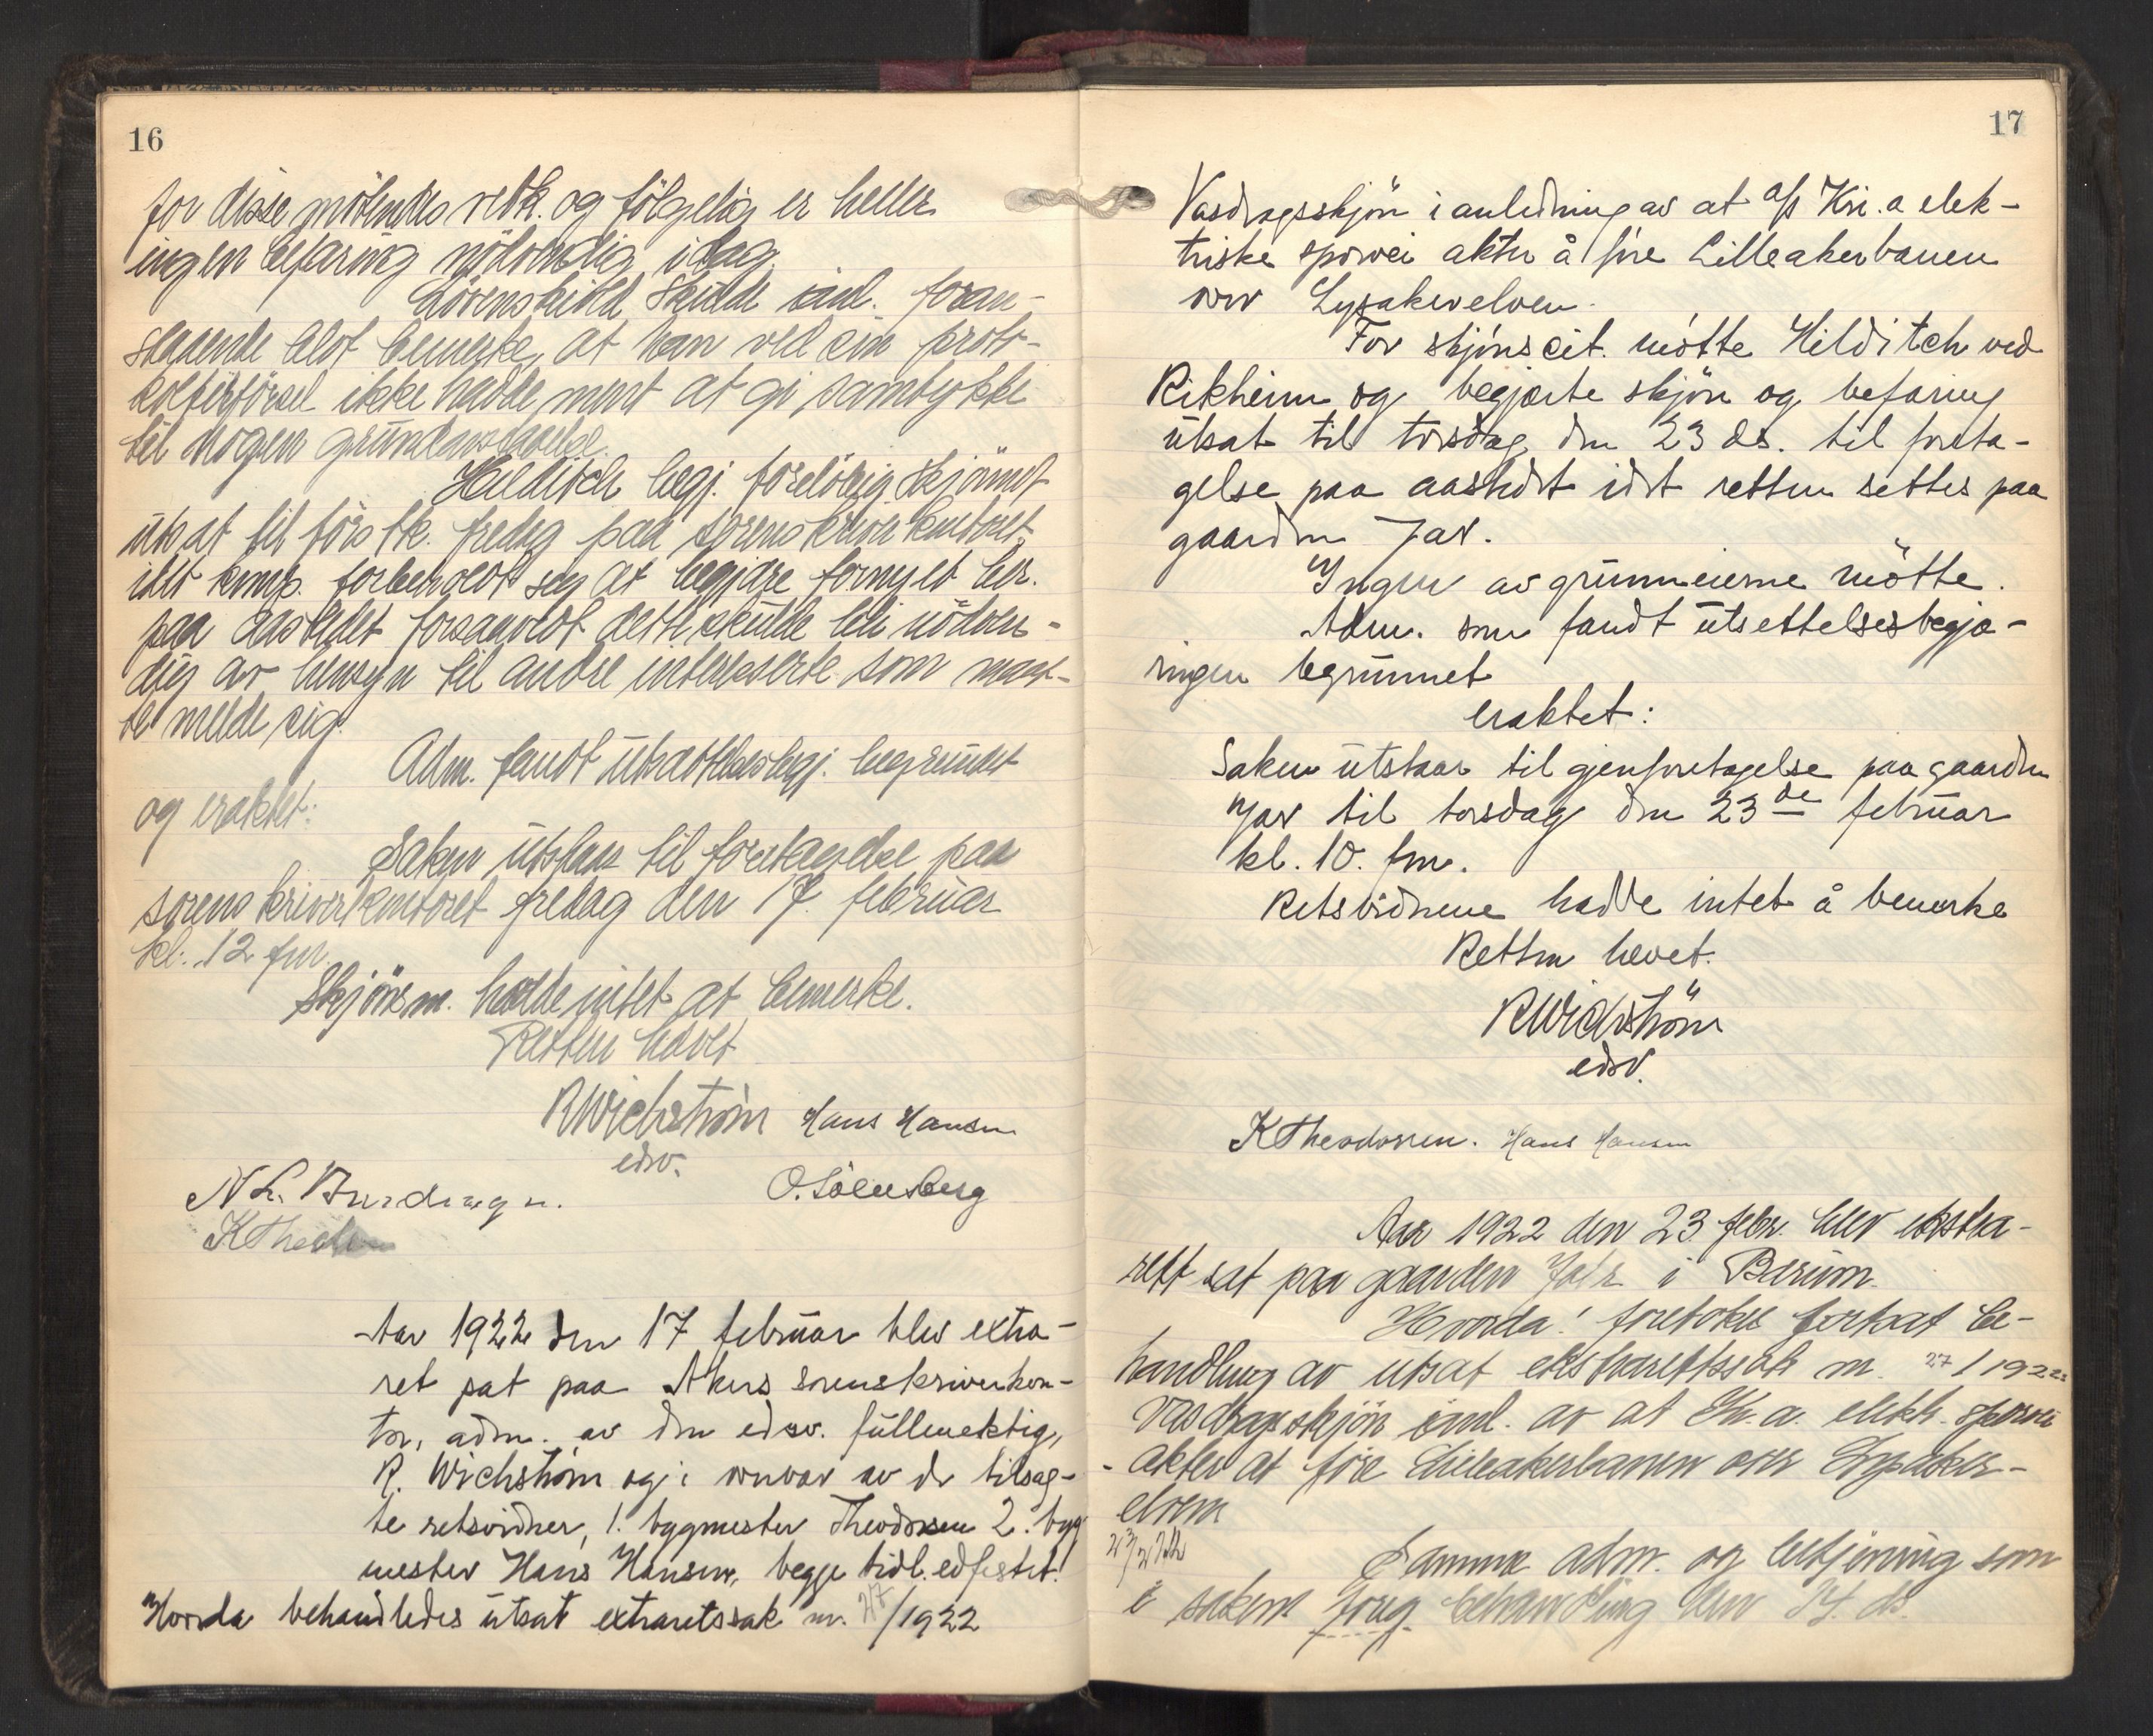 16
for disse mötendes vedk. og fölgelig er heller
ingen befaring nödvendig idag.
Lövenskiold skulde anl. foran-
staaende blot bemerke, at han ved sin proto-
koltilförsel ikke hadde ment at gi samtykke
til nogen grundavstaaelse.
Hilditch begj. forelöbig skjönnet
utsat til förstk. fredag paa sorenskriverkontoret,
idet komp. forbeholdt sig at begjære fornyet ber.
paa aastedet forsaavidt dette skulde bli nödven-
dig av hensyn til andre interesserte som maat-
te melde sig.
Adm. fandt utsættelsesbegj. begrundet
og eraktet:
Saken utstaar til foretagelse paa
sorenskriverkontoret fredag den 17. februar
kl. 12 fm.
Skjönsm. hadde intet at bemerke.
Retten hævet
RWichström Hans Hansen
edsv.
N. L. O. Sörensberg
K Theod
Aar 1922 den 17 februar blev extra-
ret sat paa Akers sorenskriverkon-
tor, adm. av den edsv. fullmektig,
R. Wichström og i nærvær av de tilsag-
te retsvidner, 1. bygmester Theodorsen 2. byg
mester Hans Hansen, begge tidl. edfestet.
Hvorda behandledes utsat extraretssak nr. 27/1922
17
Vasdragsskjön i anledning av at A/S Kri.a elek-
triske sporvei akter å före Lilleakerbanen
over Lysakerelven.
For skjönscit. mötte Hilditch ved
Rikheim og begjærte skjön og befaring
utsat til torsdag den 23 ds. til foreta-
gelse paa aastedet idet retten settes paa
gaarden Jar.
Ingen av grunneierne mötte.
Adm. som fandt utsettelsesbegjæ-
ringen begrunnet
eraktet:
Saken utstaar til gjenforetagelse paa gaarden
Jar til torsdag den 23de februar
kl. 10. fm.
Retsvidnene hadde intet å bemerke
Retten hevet.
RWichström
edsv.
KTheodorsen. Hans Hansen
Aar 1922 den 23 febr. blev ekstra-
rett sat paa gaarden Jar i Bærum.
Hvorda! foretokes fortsat be-
handling av utsat ekstrarettssak nr. 27/1922:
Vasdragsskjön anl. av at Kr.a. elektr. sporvei
akter at före Lilleakerbanen over Lysaker-
elven
23/2 22
Samme adm. og betjening som
i sakens foreg. behandling den 17. ds.